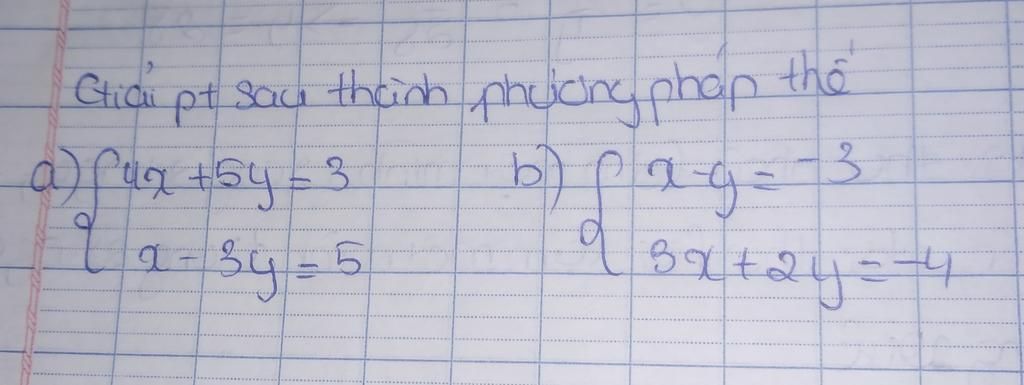 Giải pt sau thành phương pháp thế
a) { 4x + 5y = 3
x - 3y = 5
b) { x - y = -3
3x + 2y = -4